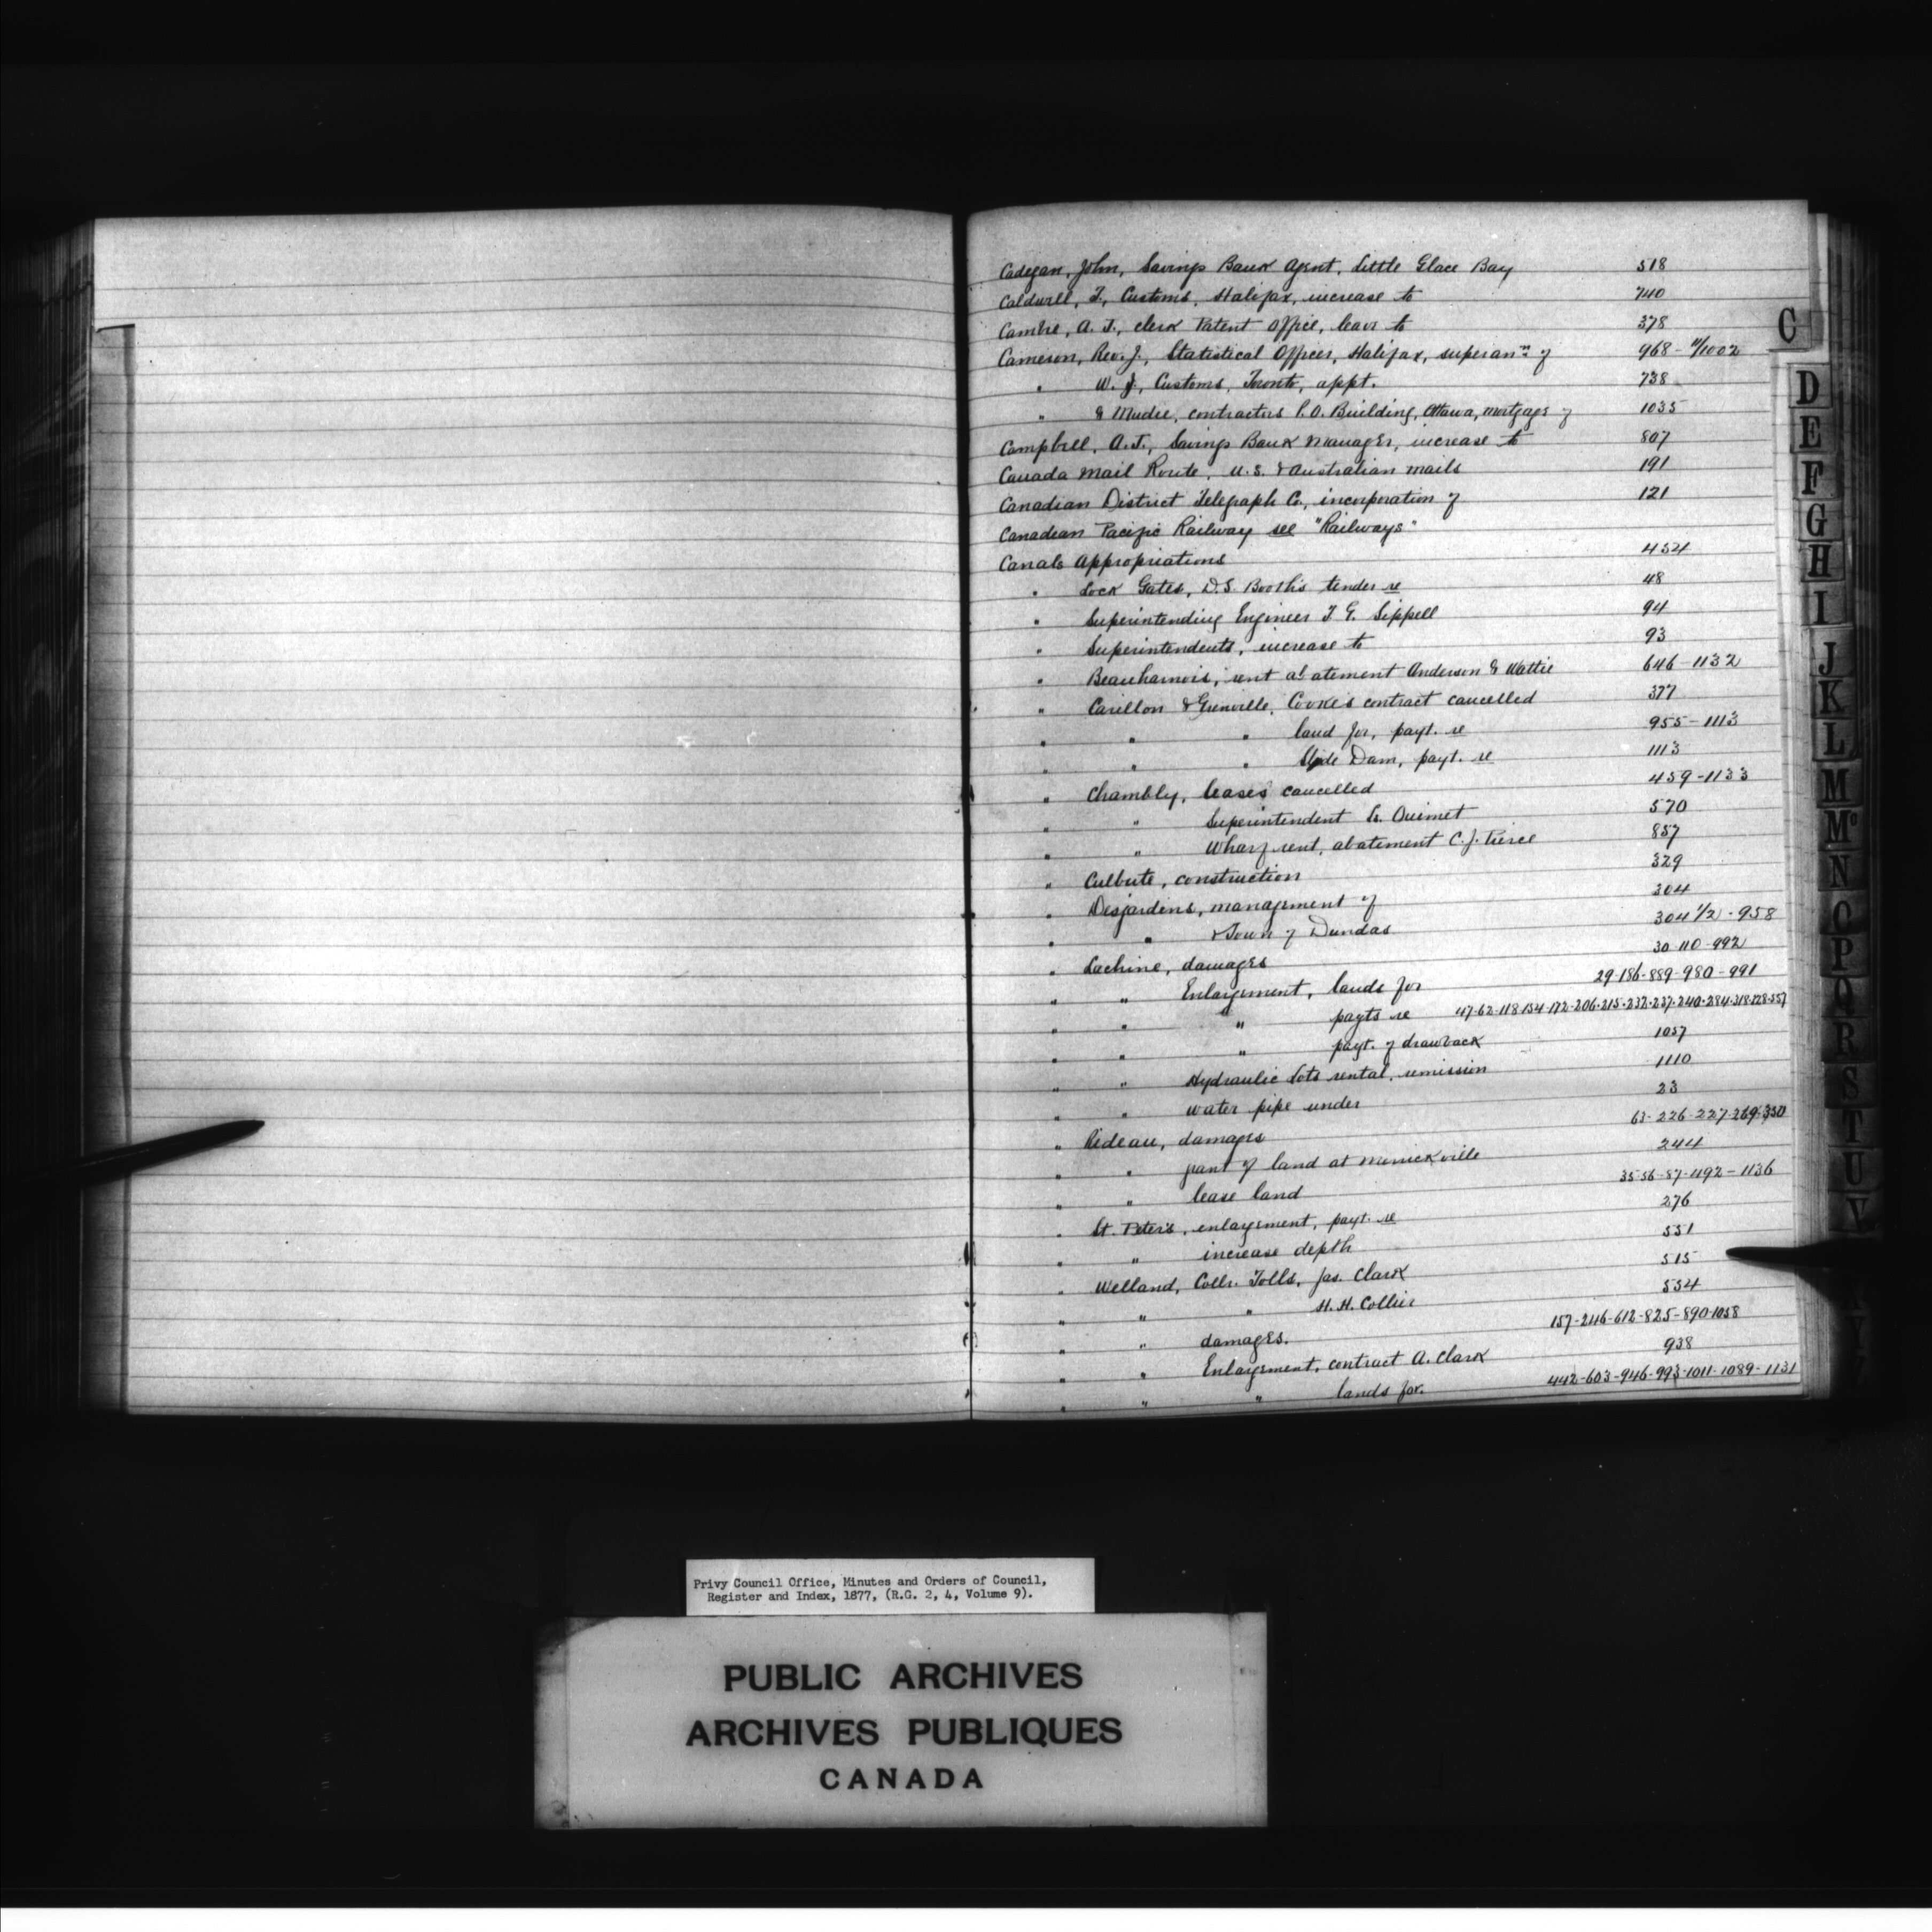 Cadegan, John, Savings Bank Agent, Little Glace Bay 518
Caldwell, T., Customs, Halifax, increase to 740
Cambie, A. J., clerk Patent Office, leave to 378
Cameron, Rev. J., Statistical Officer, Halifax, superann of 968 - 1002
" W. J., Customs, Toronto, appt. 738
" & Mudie, contractors P.O. Building, Ottawa, mortgage of 1035
Campbell, A. J., Savings Bank Manager, increase to 807
Canada Mail Route, U.S. & Australian mails 191
Canadian District Telegraph Co., incorporation of 121
Canadian Pacific Railway see "Railways"
Canals Appropriations 454
" Lock Gates, D.S. Booth's tender re 48
" Superintending Engineer F. G. Sippell 94
" Superintendents, increase to 93
" Beauharnois, rent abatement Anderson & Wattie 646 - 1132
" Carillon & Grenville, Cooke's contract cancelled 377
" " " land for, payt. re 955 - 1113
" " " Slide Dam, payt. re 1113
" Chambly, leases cancelled 459 - 1133
" " Superintendent L. Ouimet 570
" " Wharf rent, abatement C. J. Pierce 857
" Culbute, construction 329
" Desjardins, management of 304
" " & Town of Dundas 304 1/2 - 958
" Lachine, damages 30 - 110 - 992
" " Enlargement, lands for 29 - 186 - 889 - 980 - 991
" " " payts re 47-62-118-154-172-206-215-232-237-240-284-318-328-357
" " " payt. of drawback 1057
" " Hydraulic Lots rental, remission 1110
" " water pipe under 23
" Rideau, damages 63 - 226 - 227 - 269 - 350
" " grant of land at Merrickville 244
" " lease land 35-56-87-1192-1136
" St. Peter's, enlargement, payt. re 276
" " increase depth 551
" Welland, Collr. Tolls, Jas. Clark 515
" " " H. H. Collier 554
" " damages. 157-246-612-825-890-1058
" " Enlargement, contract A. Clark 938
" " " lands for. 442-603-946-993-1011-1089-1131
C
D
E
F
G
H
I
J
K
L
M
Mc
N
O
P
Q
R
S
T
U
V
Privy Council Office, Minutes and Orders of Council,
Register and Index, 1877, (R.G. 2, 4, Volume 9).
PUBLIC ARCHIVES
ARCHIVES PUBLIQUES
CANADA